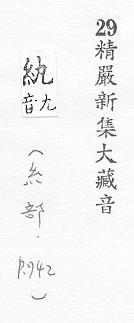 29 精嚴新集大藏音
九音
（糸部．P.942）